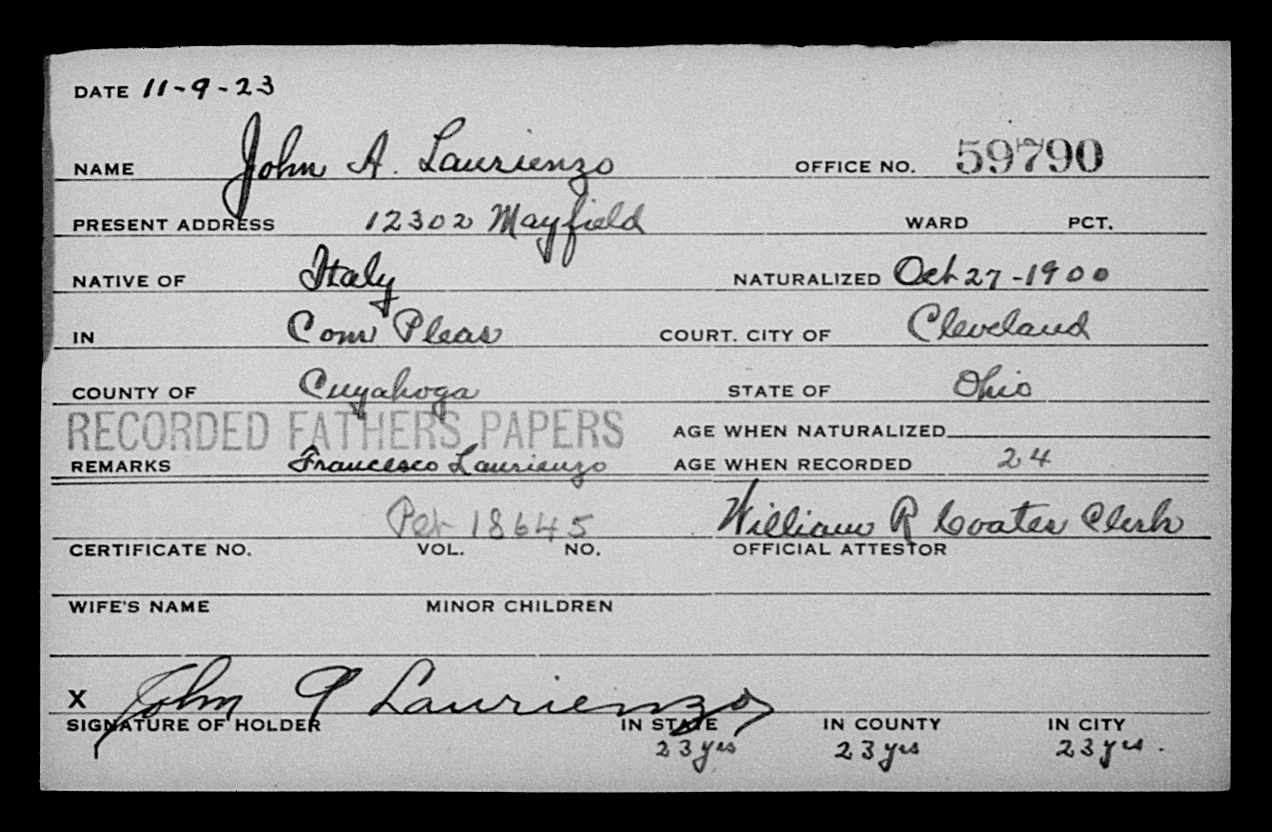 DATE 11-9-23
NAME John A. Laurienzo OFFICE NO. 59790
PRESENT ADDRESS 12302 Mayfield WARD PCT.
NATIVE OF Italy NATURALIZED Oct 27-1900
IN Com Pleas COURT. CITY OF Cleveland
COUNTY OF Cuyahoga STATE OF Ohio
RECORDED FATHERS PAPERS AGE WHEN NATURALIZED
REMARKS Francesco Laurienzo AGE WHEN RECORDED 24
Pet 18645 William R Coates Clerk
CERTIFICATE NO. VOL. NO. OFFICIAL ATTESTOR
WIFE'S NAME MINOR CHILDREN
X John A Laurienzo
SIGNATURE OF HOLDER IN STATE IN COUNTY IN CITY
23 yrs 23 yrs 23 yrs.